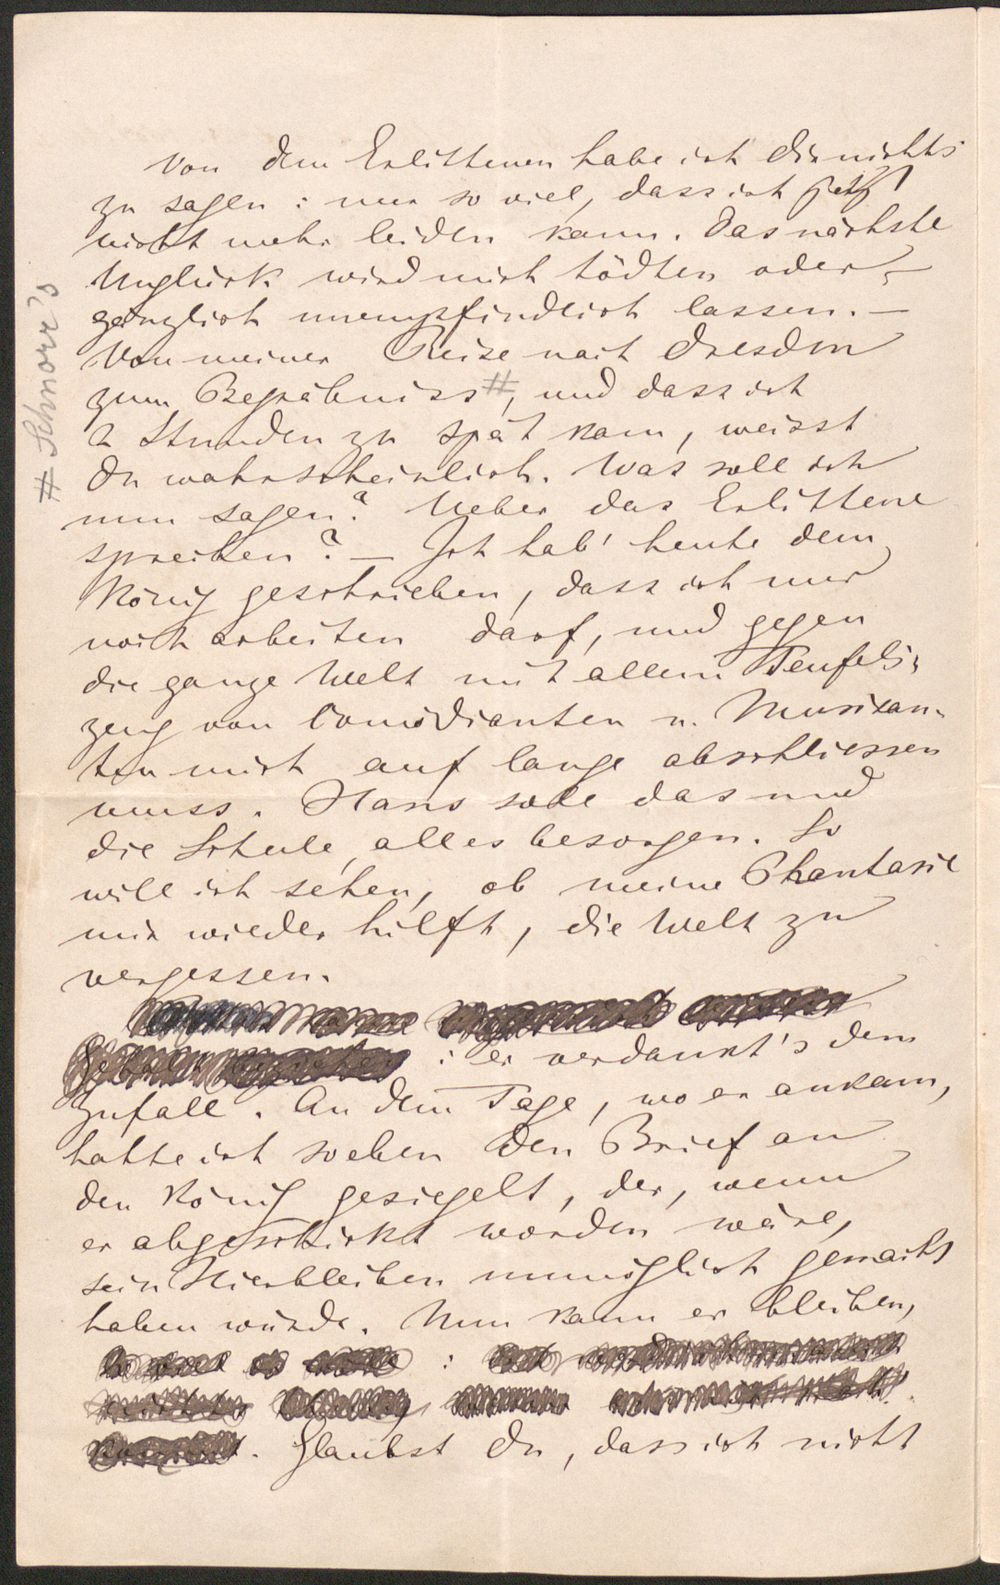 Von dem Erlittenen habe ich dir nichts
zu sagen: nur so viel, dass ich jetzt
nicht mehr leiden kann. Das nächste
Unglück wird mich tödten oder –
gänzlich unempfindlich lassen. –
Von meiner Reise nach Dresden
zum Begräbniss #, und dass ich
2 Stunden zu spät kam, weisst
du wahrscheinlich. Was soll ich
nun sagen? Ueber das Erlittene
sprechen? – Ich hab' heute dem
König geschrieben, dass ich nur
noch arbeiten darf, und gegen
die ganze Welt mit allem Teufels-
zeug von Comödianten u. Musikan-
ten mich auf lange abschliessen
muss. Hans soll das und
die Schule, alles besorgen. So
will ich sehen, ob meine Phantasie
mir wieder hilft, die Welt zu
vergessen.
: er verdankt's dem
Zufall. An dem Tage, wo er ankam,
hatte ich soeben den Brief an
den König gesiegelt, der, wenn
er abgeschickt worden wäre,
sein Hierbleiben unmöglich gemacht
haben würde. Nun kann er bleiben,
:
. Glaubst du, dass ich nicht
# Schnorr's